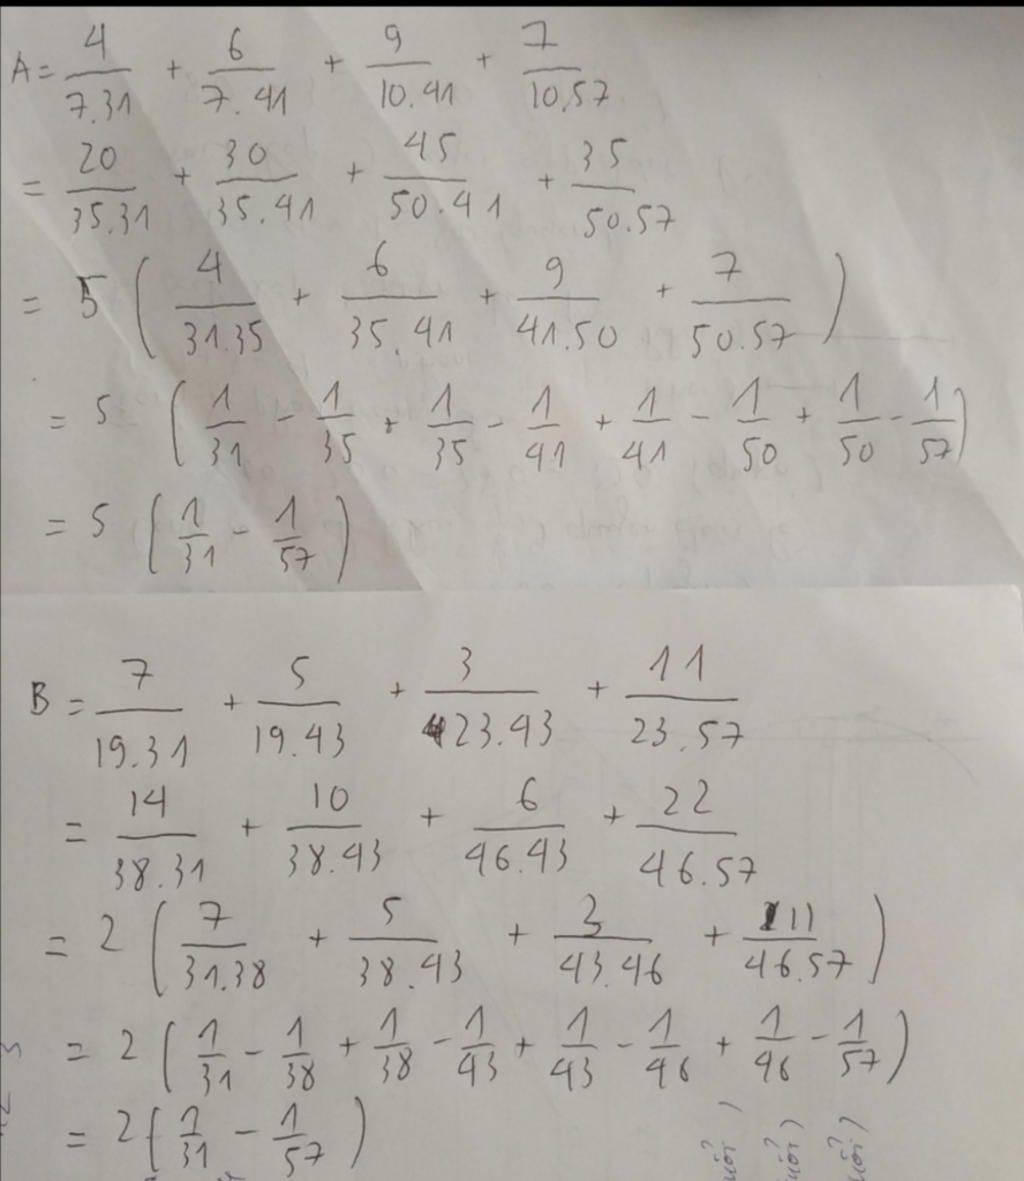 A = 4/7.31 + 6/7.41 + 9/10.41 + 7/10.57
= 20/35.31 + 30/35.41 + 45/50.41 + 35/50.57
= 5 ( 4/31.35 + 6/35.41 + 9/41.50 + 7/50.57 )
= 5 ( 1/31 - 1/35 + 1/35 - 1/41 + 1/41 - 1/50 + 1/50 - 1/57 )
= 5 ( 1/31 - 1/57 )
B = 7/19.31 + 5/19.43 + 3/23.43 + 11/23.57
= 14/38.31 + 10/38.43 + 6/46.43 + 22/46.57
= 2 ( 7/31.38 + 5/38.43 + 3/43.46 + 11/46.57 )
= 2 ( 1/31 - 1/38 + 1/38 - 1/43 + 1/43 - 1/46 + 1/46 - 1/57 )
= 2 ( 1/31 - 1/57 )